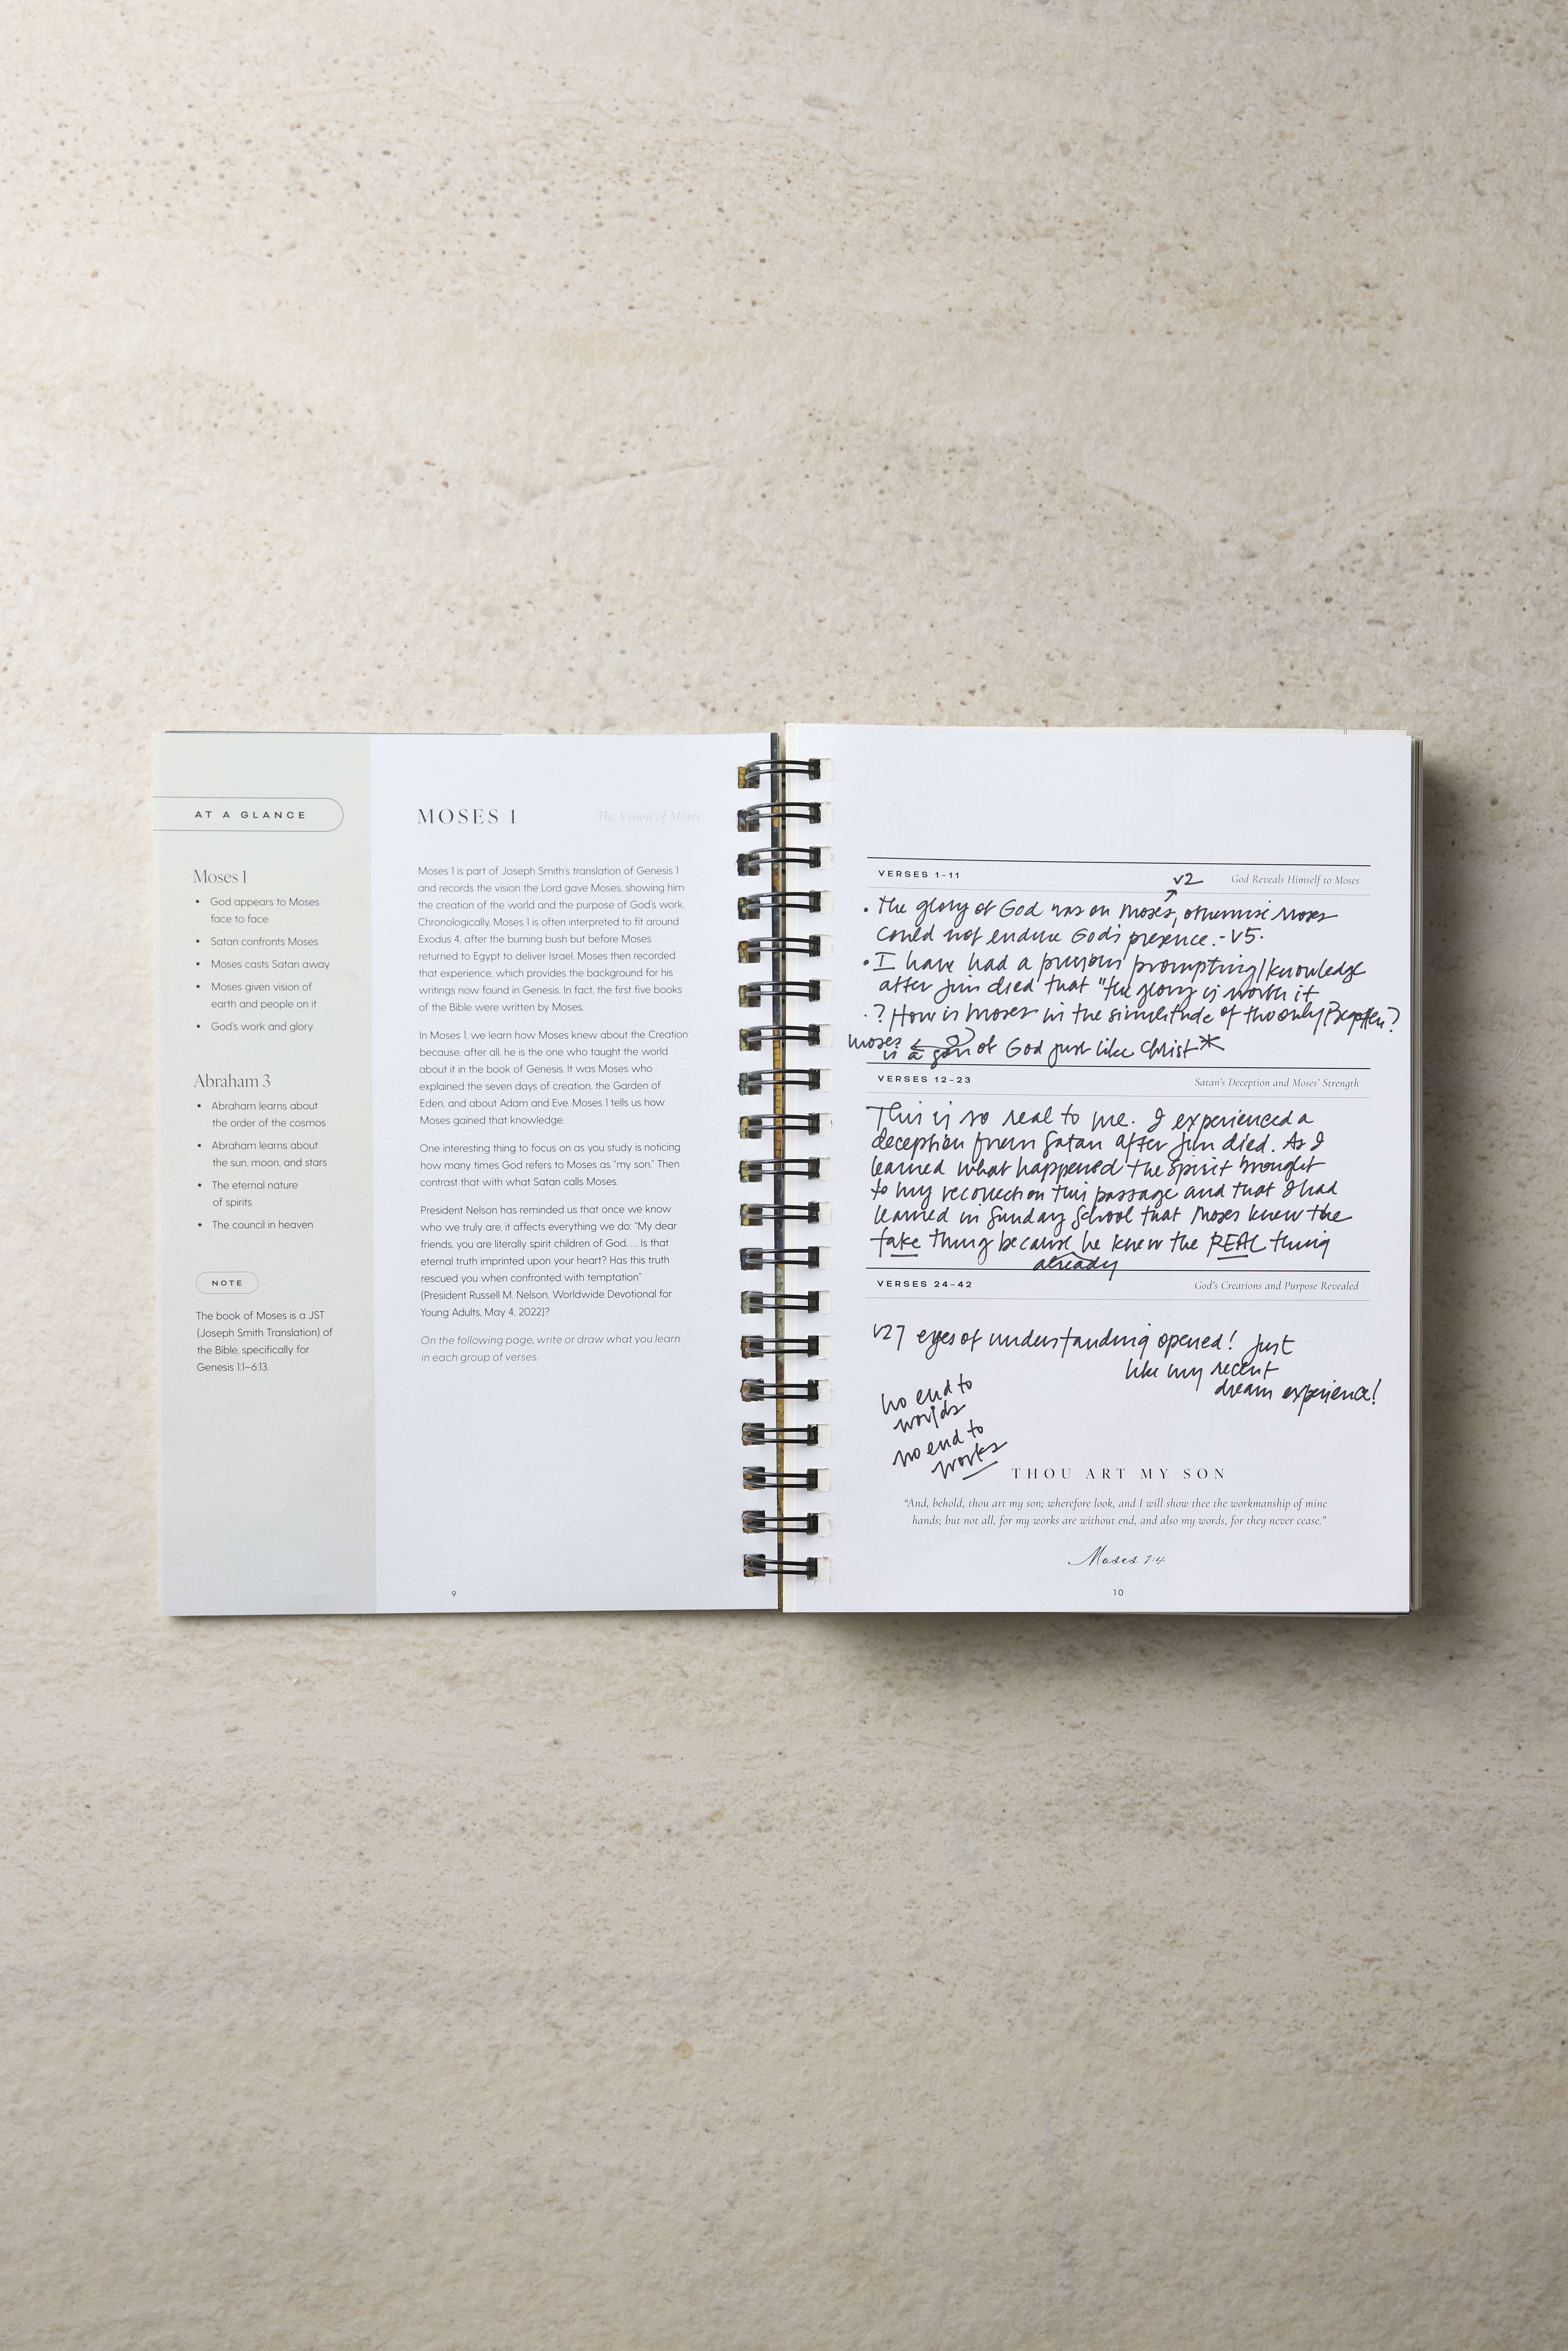 AT A GLANCE
Moses 1
• God appears to Moses
face to face
• Satan confronts Moses
• Moses casts Satan away
• Moses given vision of
earth and people on it
• God's work and glory
Abraham 3
• Abraham learns about
the order of the cosmos
• Abraham learns about
the sun, moon, and stars
• The eternal nature
of spirits
• The council in heaven
NOTE
The book of Moses is a JST
(Joseph Smith Translation) of
the Bible, specifically for
Genesis 1:1–6:13.
MOSES 1
The Vision of Moses
Moses 1 is part of Joseph Smith's translation of Genesis 1
and records the vision the Lord gave Moses, showing him
the creation of the world and the purpose of God's work.
Chronologically, Moses 1 is often interpreted to fit around
Exodus 4, after the burning bush but before Moses
returned to Egypt to deliver Israel. Moses then recorded
that experience, which provides the background for his
writings now found in Genesis. In fact, the first five books
of the Bible were written by Moses.
In Moses 1, we learn how Moses knew about the Creation
because, after all, he is the one who taught the world
about it in the book of Genesis. It was Moses who
explained the seven days of creation, the Garden of
Eden, and about Adam and Eve. Moses 1 tells us how
Moses gained that knowledge.
One interesting thing to focus on as you study is noticing
how many times God refers to Moses as “my son.” Then
contrast that with what Satan calls Moses.
President Nelson has reminded us that once we know
who we truly are, it affects everything we do: “My dear
friends, you are literally spirit children of God. ... Is that
eternal truth imprinted upon your heart? Has this truth
rescued you when confronted with temptation”
(President Russell M. Nelson, Worldwide Devotional for
Young Adults, May 4, 2022)?
On the following page, write or draw what you learn
in each group of verses.
9
VERSES 1–11
God Reveals Himself to Moses
v2
• The glory of God was on Moses, otherwise Moses
could not endure God's presence. - v5.
• I have had a prompting/knowledge
after Jim died that "the glory is worth it
• ? How is Moses in the similitude of the only Begotten?
Moses
is a son of God just like Christ *
VERSES 12–23
Satan's Deception and Moses' Strength
This is so real to me. I experienced a
deception from Satan after Jim died. As I
learned what happened the Spirit brought
to my recollection this passage and that I had
learned in Sunday School that Moses knew the
fake thing because he knew the REAL thing
already
VERSES 24–42
God's Creations and Purpose Revealed
v27 eyes of understanding opened! Just
like my recent
dream experience!
no end to
worlds
no end to
works
THOU ART MY SON
“And, behold, thou art my son; wherefore look, and I will show thee the workmanship of mine
hands; but not all, for my works are without end, and also my words, for they never cease.”
Moses 1:4
10